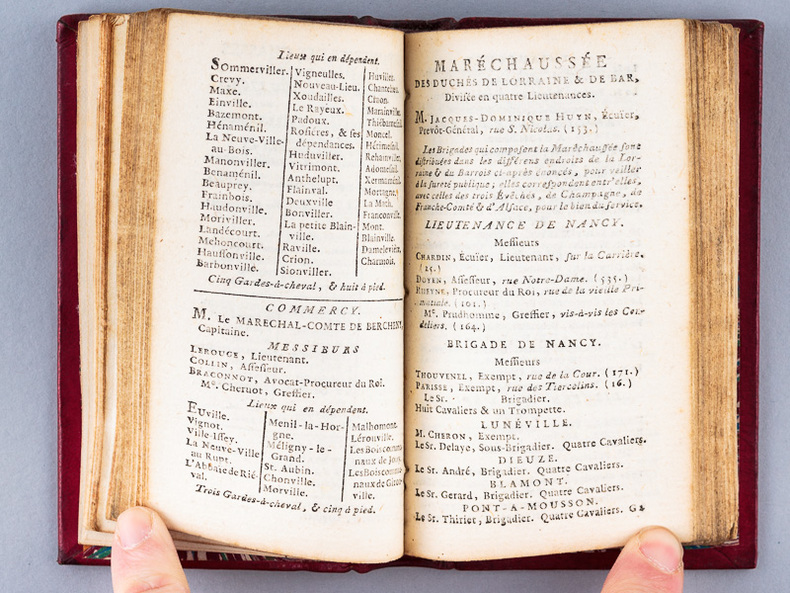 Lieux qui en dépendent.
Sommerviller.
Crevy.
Maxe.
Einville.
Bazemont.
Hénaménil.
La Neuve-Ville-
au-Bois.
Manonviller.
Benaménil.
Beauprey.
Fraimbois.
Haudonville.
Moriviller.
Landécourt.
Mehoncourt.
Haussonville.
Barbonville.
Vigneulles.
Nouveau-Lieu.
Xoudailles.
Le Rayeux.
Padoux.
Rosières, & ses
dépendances.
Huduviller.
Vitrimont.
Anthelupt.
Flainval.
Deuxville
Bonviller.
La petite Blain-
ville.
Raville.
Crion.
Sionviller.
Huviller.
Craon.
Moncel.
Rehainviller.
Adomenil.
Xermaménil.
Mortagne.
La Math.
Franconville.
Mont.
Blainville.
Charmois.
Cinq Gardes-à-cheval, & huit à pied.
COMMERCY.
M. LE MARECHAL-COMTE DE BERCHENY,
Capitaine.
MESSIEURS
LEROUGE, Lieutenant.
COLLIN, Assesseur.
BRACONNOT, Avocat-Procureur du Roi.
Me. Cheruot, Greffier.
Lieux qui en dépendent.
Euville.
Vignot.
Ville-Issey.
La Neuve-Ville
au Rupt.
L'Abbaie de Rié-
val.
Menil-la-Hor-
gne.
Méligny-le-
Grand.
St. Aubin.
Chonville.
Morville.
Malhomont.
Lérouville.
Les Bois commu-
naux de
Les Bois commu-
naux de
ville.
Trois Gardes-à-cheval, & cinq à pied.
MARÉCHAUSSÉE
DES DUCHÉS DE LORRAINE & DE BAR,
Divisée en quatre Lieutenances.
M. JACQUES-DOMINIQUE HUYN, Ecuïer,
Prevôt-Général, rue S. Nicolas. (153.)
Les Brigades qui composent la Maréchaussée sont
distribuées dans les différens endroits de la Lor-
raine & du Barrois ci-après énoncés, pour veiller
à la sureté publique; elles correspondent entr'elles,
avec celles des trois Evêchés, de Champagne, de
Franche-Comté & d'Alsace, pour le bien du service.
LIEUTENANCE DE NANCY.
Messieurs
CHARDIN, Ecuïer, Lieutenant, sur la Carrière.
(15.)
DOYEN, Assesseur, rue Notre-Dame. (535.)
RUEYNE, Procureur du Roi, rue de la vieille Pri-
matiale. (101.)
Me. Prudhomme, Greffier, vis-à-vis les Cor-
deliers. (164.)
BRIGADE DE NANCY.
Messieurs
THOUVENEL, Exempt, rue de la Cour. (171.)
PARISSE, Exempt, rue des Tiercelins. (16.)
Le Sr. Brigadier.
Huit Cavaliers & un Trompette.
LUNÉVILLE.
M. CHERON, Exempt.
Le Sr. Delaye, Sous-Brigadier. Quatre Cavaliers.
DIEUZE.
Le Sr. André, Brigadier. Quatre Cavaliers.
BLAMONT.
Le Sr. Gerard, Brigadier. Quatre Cavaliers.
PONT-A-MOUSSON.
Le Sr. Thiriet, Brigadier. Quatre Cavaliers. G2